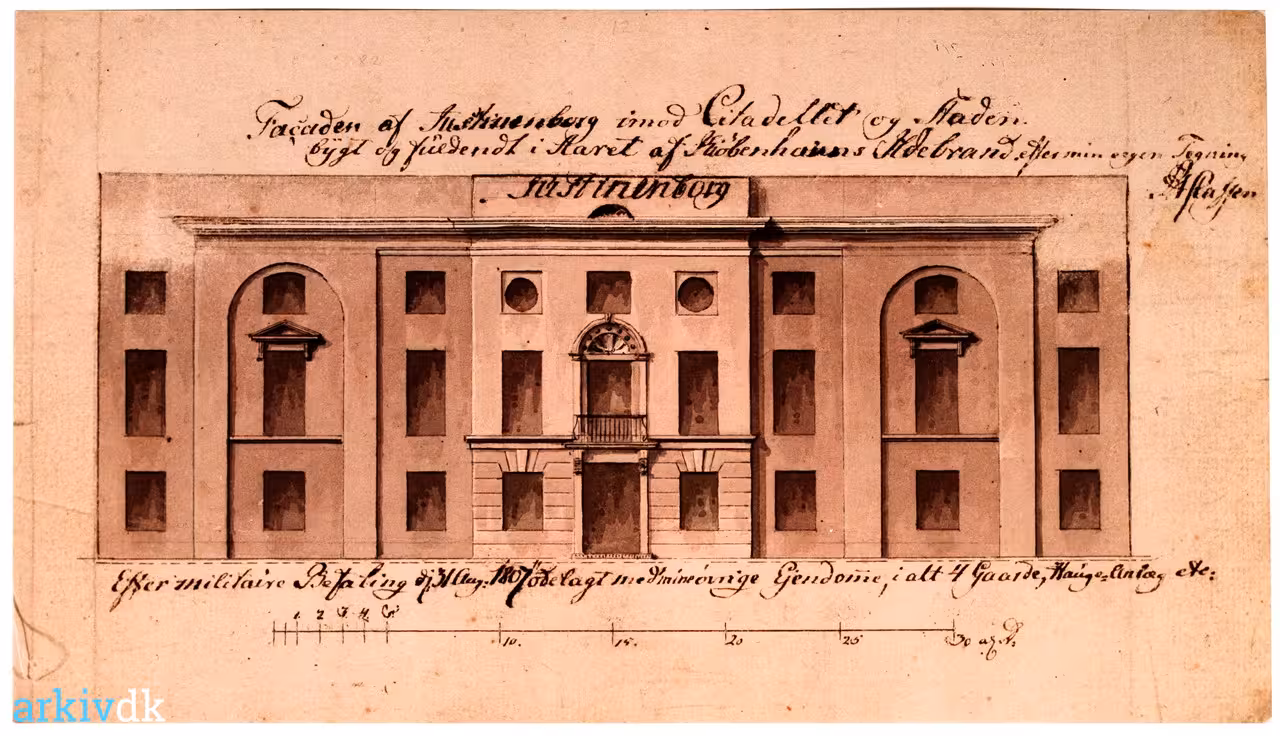 Façaden af Justinenborg imod Citadellet og Staden.
bygt og fuldendt i Aaret af Kiøbenhavns Ildebrand, efter min egen Tegning
Classen
Justinenborg
Efter militaire Befaling d. 31 Aug: 1807 ødelagt med mine øvrige Ejendome, i alt 4 Gaarde, Hauge-Anlæg etc:
1 2 3 4 5 10. 15. 20 25 30
arkivdk